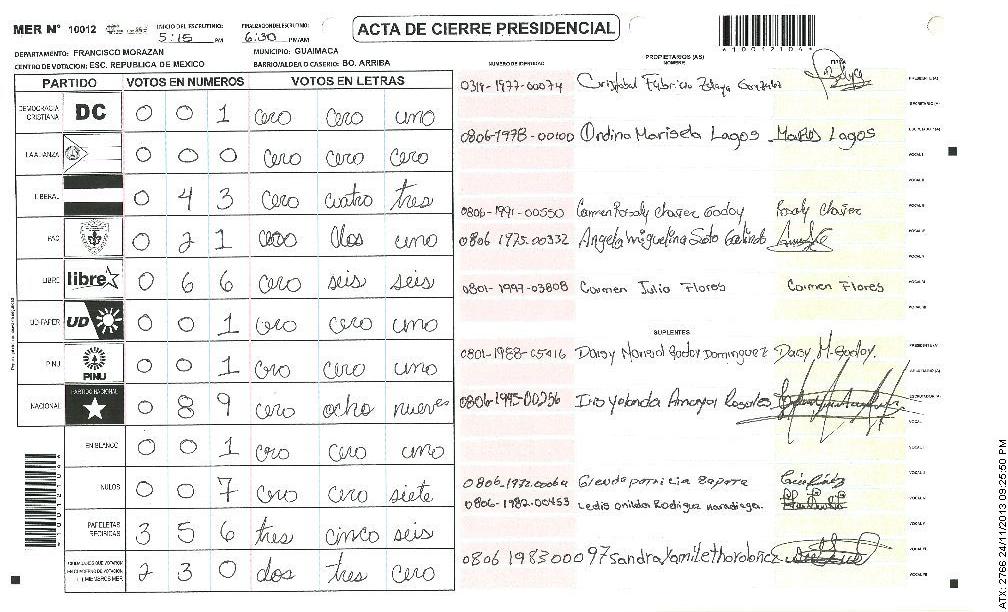 MER Nº 10012 INICIO DEL ESCRUTINIO: 5:15 PM FINALIZACION DEL ESCRUTINIO: 6:30 PM/AM
ACTA DE CIERRE PRESIDENCIAL
DEPARTAMENTO: FRANCISCO MORAZAN MUNICIPIO: GUAIMACA
CENTRO DE VOTACION: ESC. REPUBLICA DE MEXICO BARRIO/ALDEA O CASERIO: BO. ARRIBA
PARTIDO VOTOS EN NUMEROS VOTOS EN LETRAS
DEMOCRACIA CRISTIANA DC 0 0 1 cero cero uno
LA ALIANZA 0 0 0 cero cero cero
LIBERAL 0 4 3 cero cuatro tres
PAC 0 2 1 cero dos uno
LIBRE libre 0 6 6 cero seis seis
UD-FAPER UD 0 0 1 cero cero uno
PINU PINU 0 0 1 cero cero uno
NACIONAL PARTIDO NACIONAL 0 8 9 cero ocho nueve
EN BLANCO 0 0 1 cero cero uno
NULOS 0 0 7 cero cero siete
PAPELETAS RECIBIDAS 3 5 6 tres cinco seis
CIUDADANOS QUE VOTARON 2 3 0 dos tres cero
NUMERO DE IDENTIDAD PROPIETARIOS (AS) NOMBRE FIRMA
Cristobal Fabricio Zelaya PRESIDENTE(A)
SECRETARIO (A)
0806-1978-00100 Ondina Marisela Lagos Lagos ESCRUTADOR (A)
VOCAL I
VOCAL II
0806-1991-00550 Carmen Rosaly Chavez Godoy Rosaly Chavez
0806 1975.00332 Angela Miguelina Soto Galindo
0801-1997-03808 Carmen Julia Flores Carmen Flores
SUPLENTES
0801-1988-05416 Daisy Marisol Godoy Dominguez Daisy M. Godoy. PRESIDENTE(A)
0806-1995-00256 Iris Yolanda Amaya Rosales ESCRUTADOR (A)
Glenda patricia
0806-1982-00453 Ledis onilda Rodriguez
0806 1983 00097 Sandra Yamileth
ATX: 2766 24/11/2013 09:25:50 PM